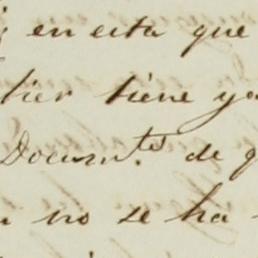 en esta que
tier tiene ya
Docum.tos de q
no se ha